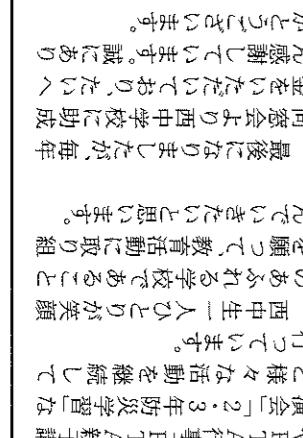 演会」「2・3年防災学習」な
ど様々な活動を継続して
行っています。
西中生一人ひとりが笑顔
のあふれる学校であること
を願って、教育活動に取り組
んでいきたいと思います。
最後になりましたが、毎年
同窓会より西中学校に助成
金をいただいており、たいへ
ん感謝しています。誠にあり
がとうございます。